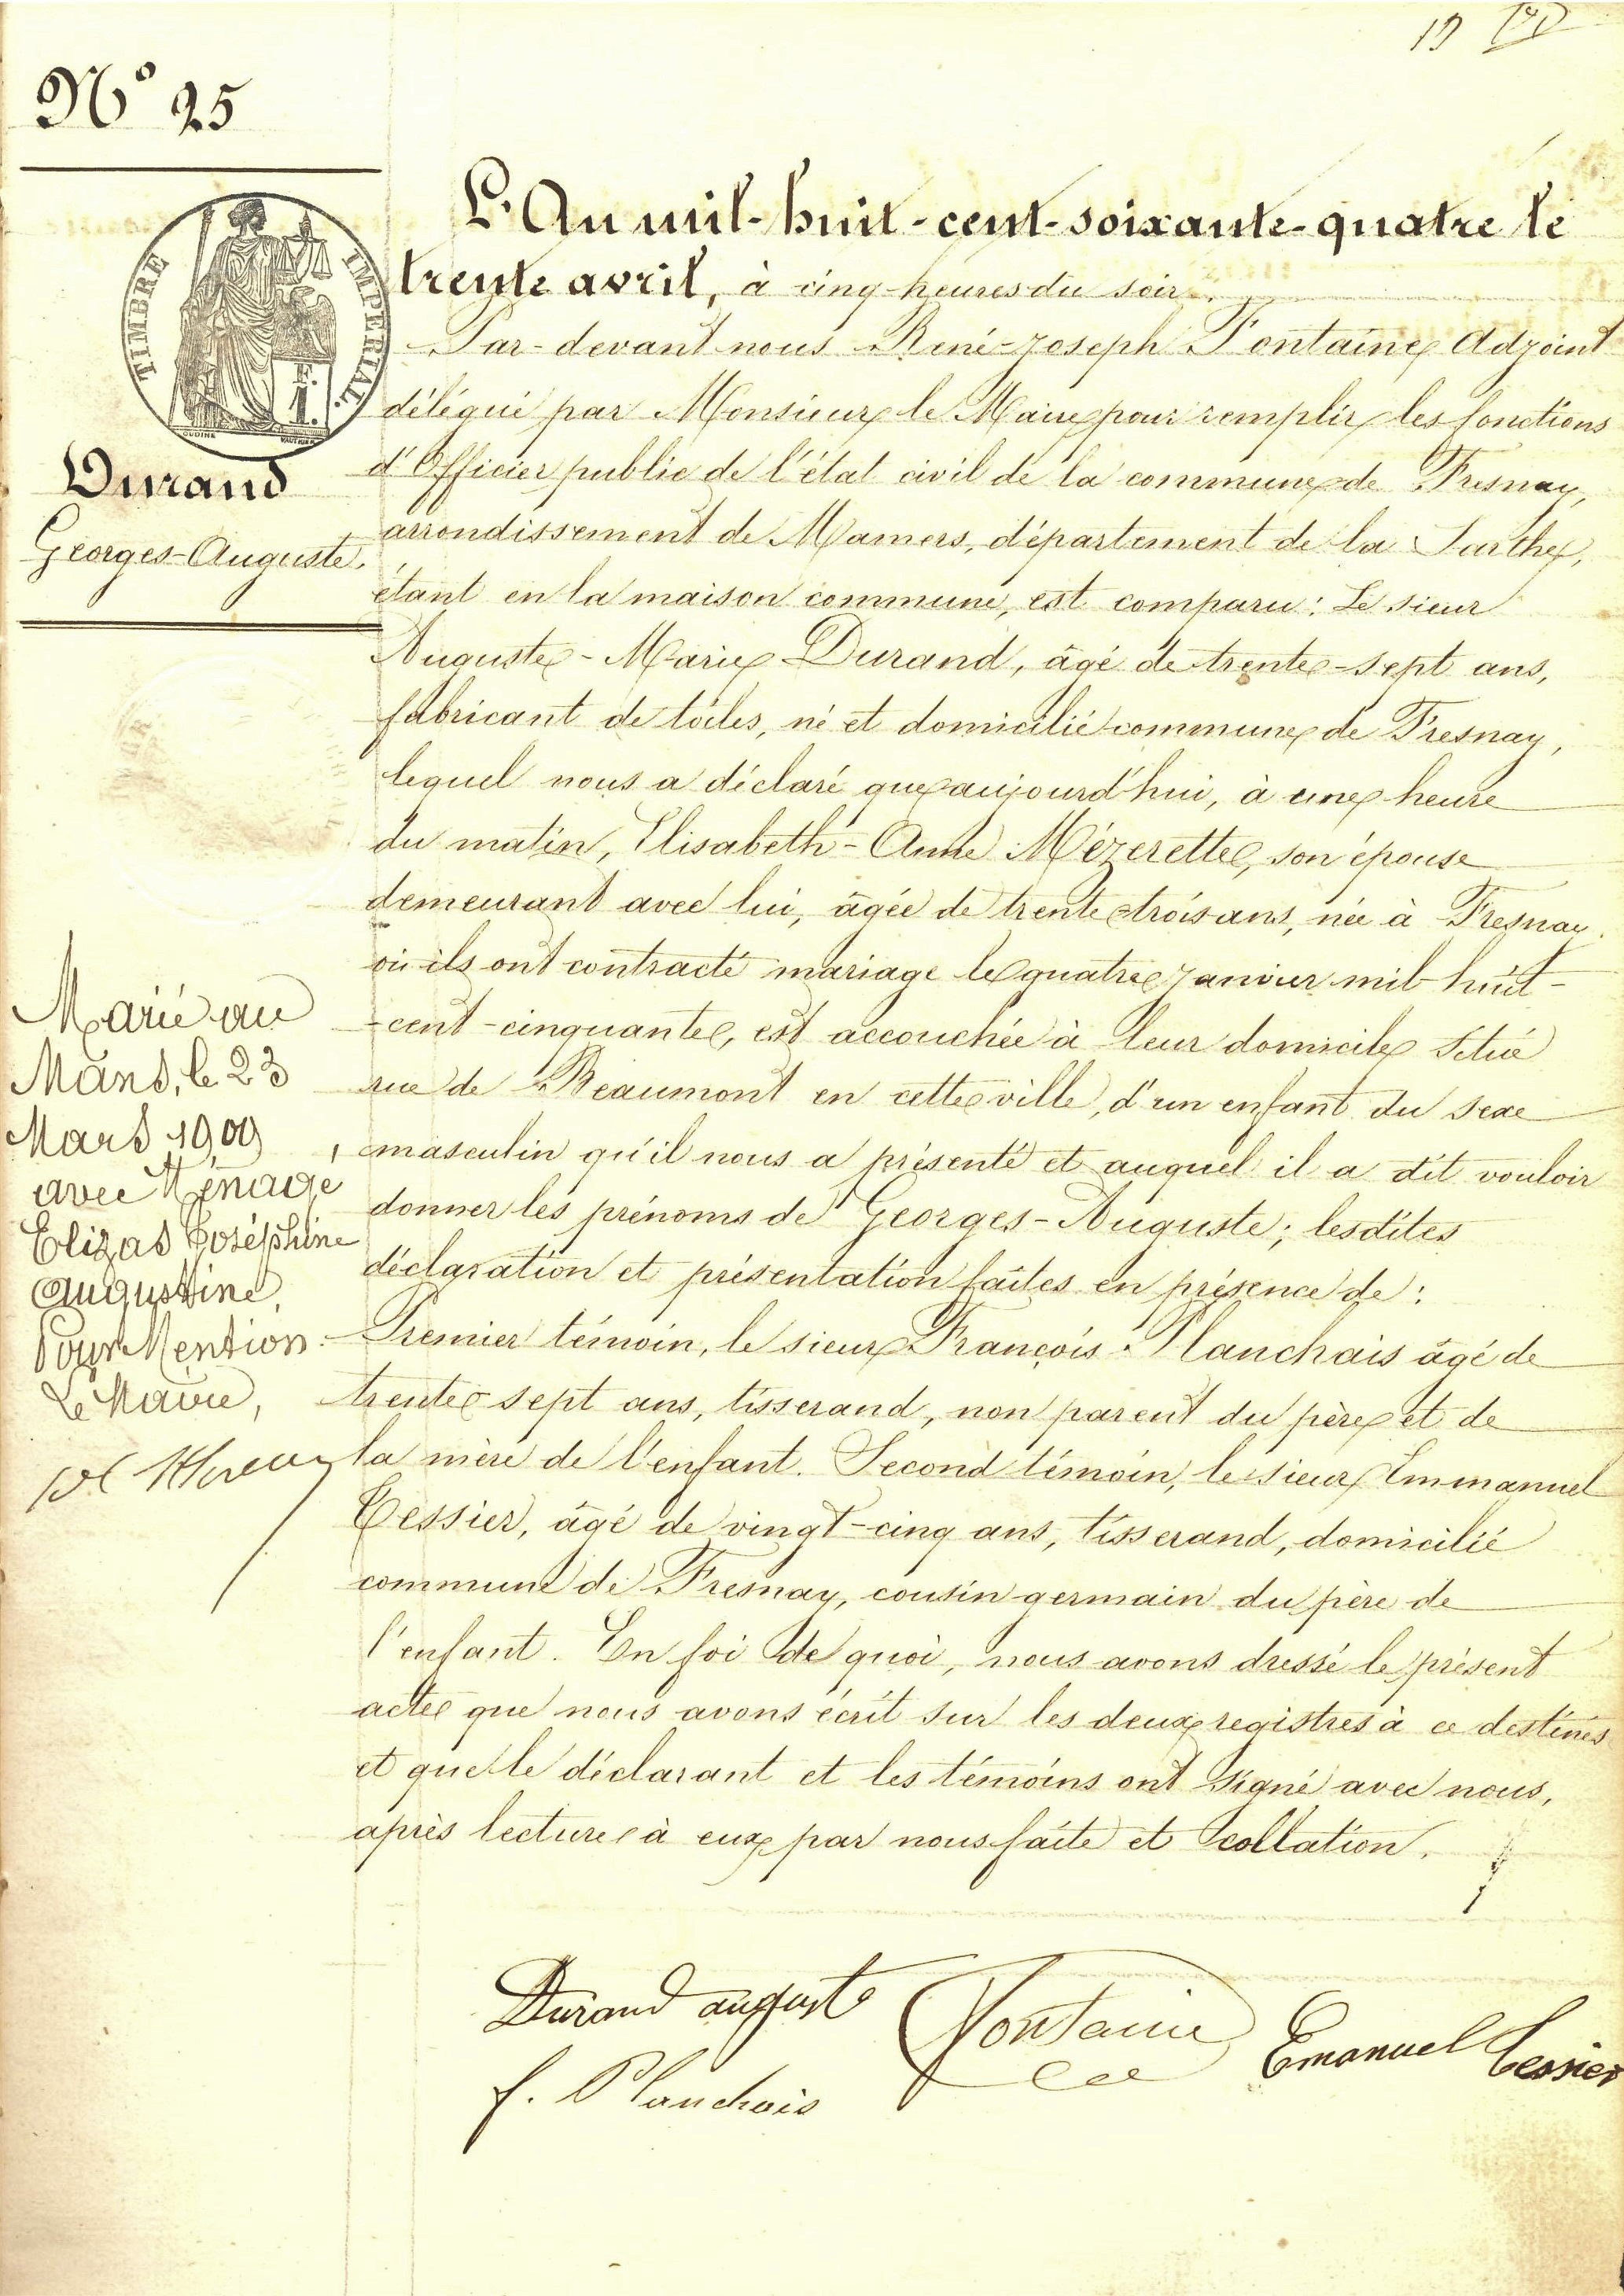 N° 25
TIMBRE IMPERIAL
Durand
Georges-Auguste.
L'An mil-huit-cent-soixante-quatre le
trente avril, à cinq heures du soir.
Par-devant nous René-Joseph Fontaine, Adjoint
délégué par Monsieur le Maire pour remplir les fonctions
d'Officier public de l'état civil de la commune de Fresnay,
arrondissement de Mamers, département de la Sarthe,
étant en la maison commune, est comparu: Le sieur
Auguste-Marie Durand, âgé de trente-sept ans,
fabricant de toiles, né et domicilié commune de Fresnay,
lequel nous a déclaré que aujourd'hui, à une heure
du matin, Elisabeth-Anne Mézerette, son épouse
demeurant avec lui, âgée de trente trois ans, née à Fresnay
où ils ont contracté mariage le quatre janvier mil-huit-
-cent-cinquante, est accouchée à leur domicile situé
rue de Beaumont en cette ville, d'un enfant du sexe
masculin qu'il nous a présenté et auquel il a dit vouloir
donner les prénoms de Georges-Auguste; lesdites
déclaration et présentation faites en présence de:
Premier témoin, le sieur François Planchais âgé de
trente sept ans, tisserand, non parent du père et de
la mère de l'enfant. Second témoin, le sieur Emmanuel
Tessier, âgé de vingt-cinq ans, tisserand, domicilié
commune de Fresnay, cousin germain du père de
l'enfant. En foi de quoi, nous avons dressé le présent
acte que nous avons écrit sur les deux registres à ce destinés
et que le déclarant et les témoins ont signé avec nous,
après lecture à eux par nous faite et collation.
Marié au
Mans, le 23
Mars 1909
avec Ménage
Elizas Joséphine
Augustine,
Pour Mention.
Le Maire,
Durand auguste
Fontaine
Emanuel Tessier
f. Planchais